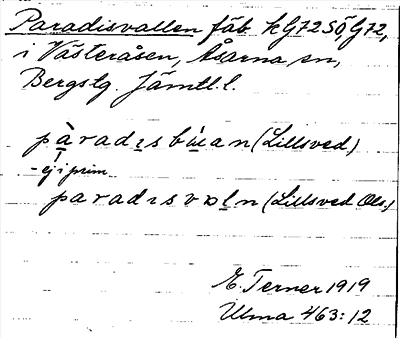 Paradisvallen fäb. kG72SÖ, G72,
i Västeråsen, Åsarna sn,
Bergstg. Jämtl. l.
pàradɩs bùan (Lillsved)
- ej i prim
paradɩs vɒln (Lillsved Ols.)
E. Terner 1919
Ulma 463:12